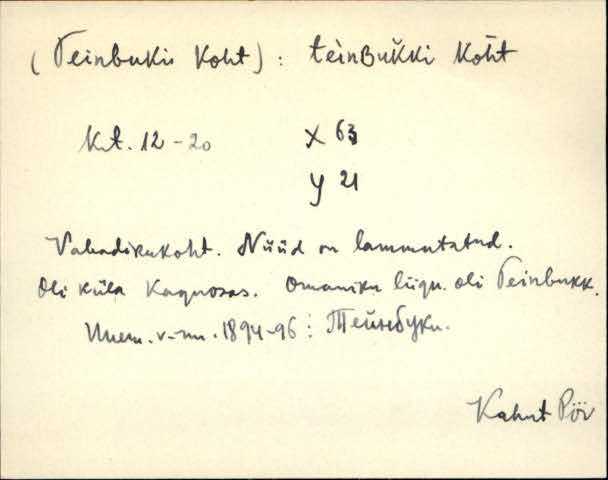 (Teinbukis Koht) : tèinBŭkki kōht
Kt. 12-20 X 63
Y 21
Vabadikukoht. Nüüd on lammutatud.
Oli küla kaguosas. Omaniku liign. oli Teinbukk.
Имен. 1894-96 : Тейнбуки.
Kahnt Pöi